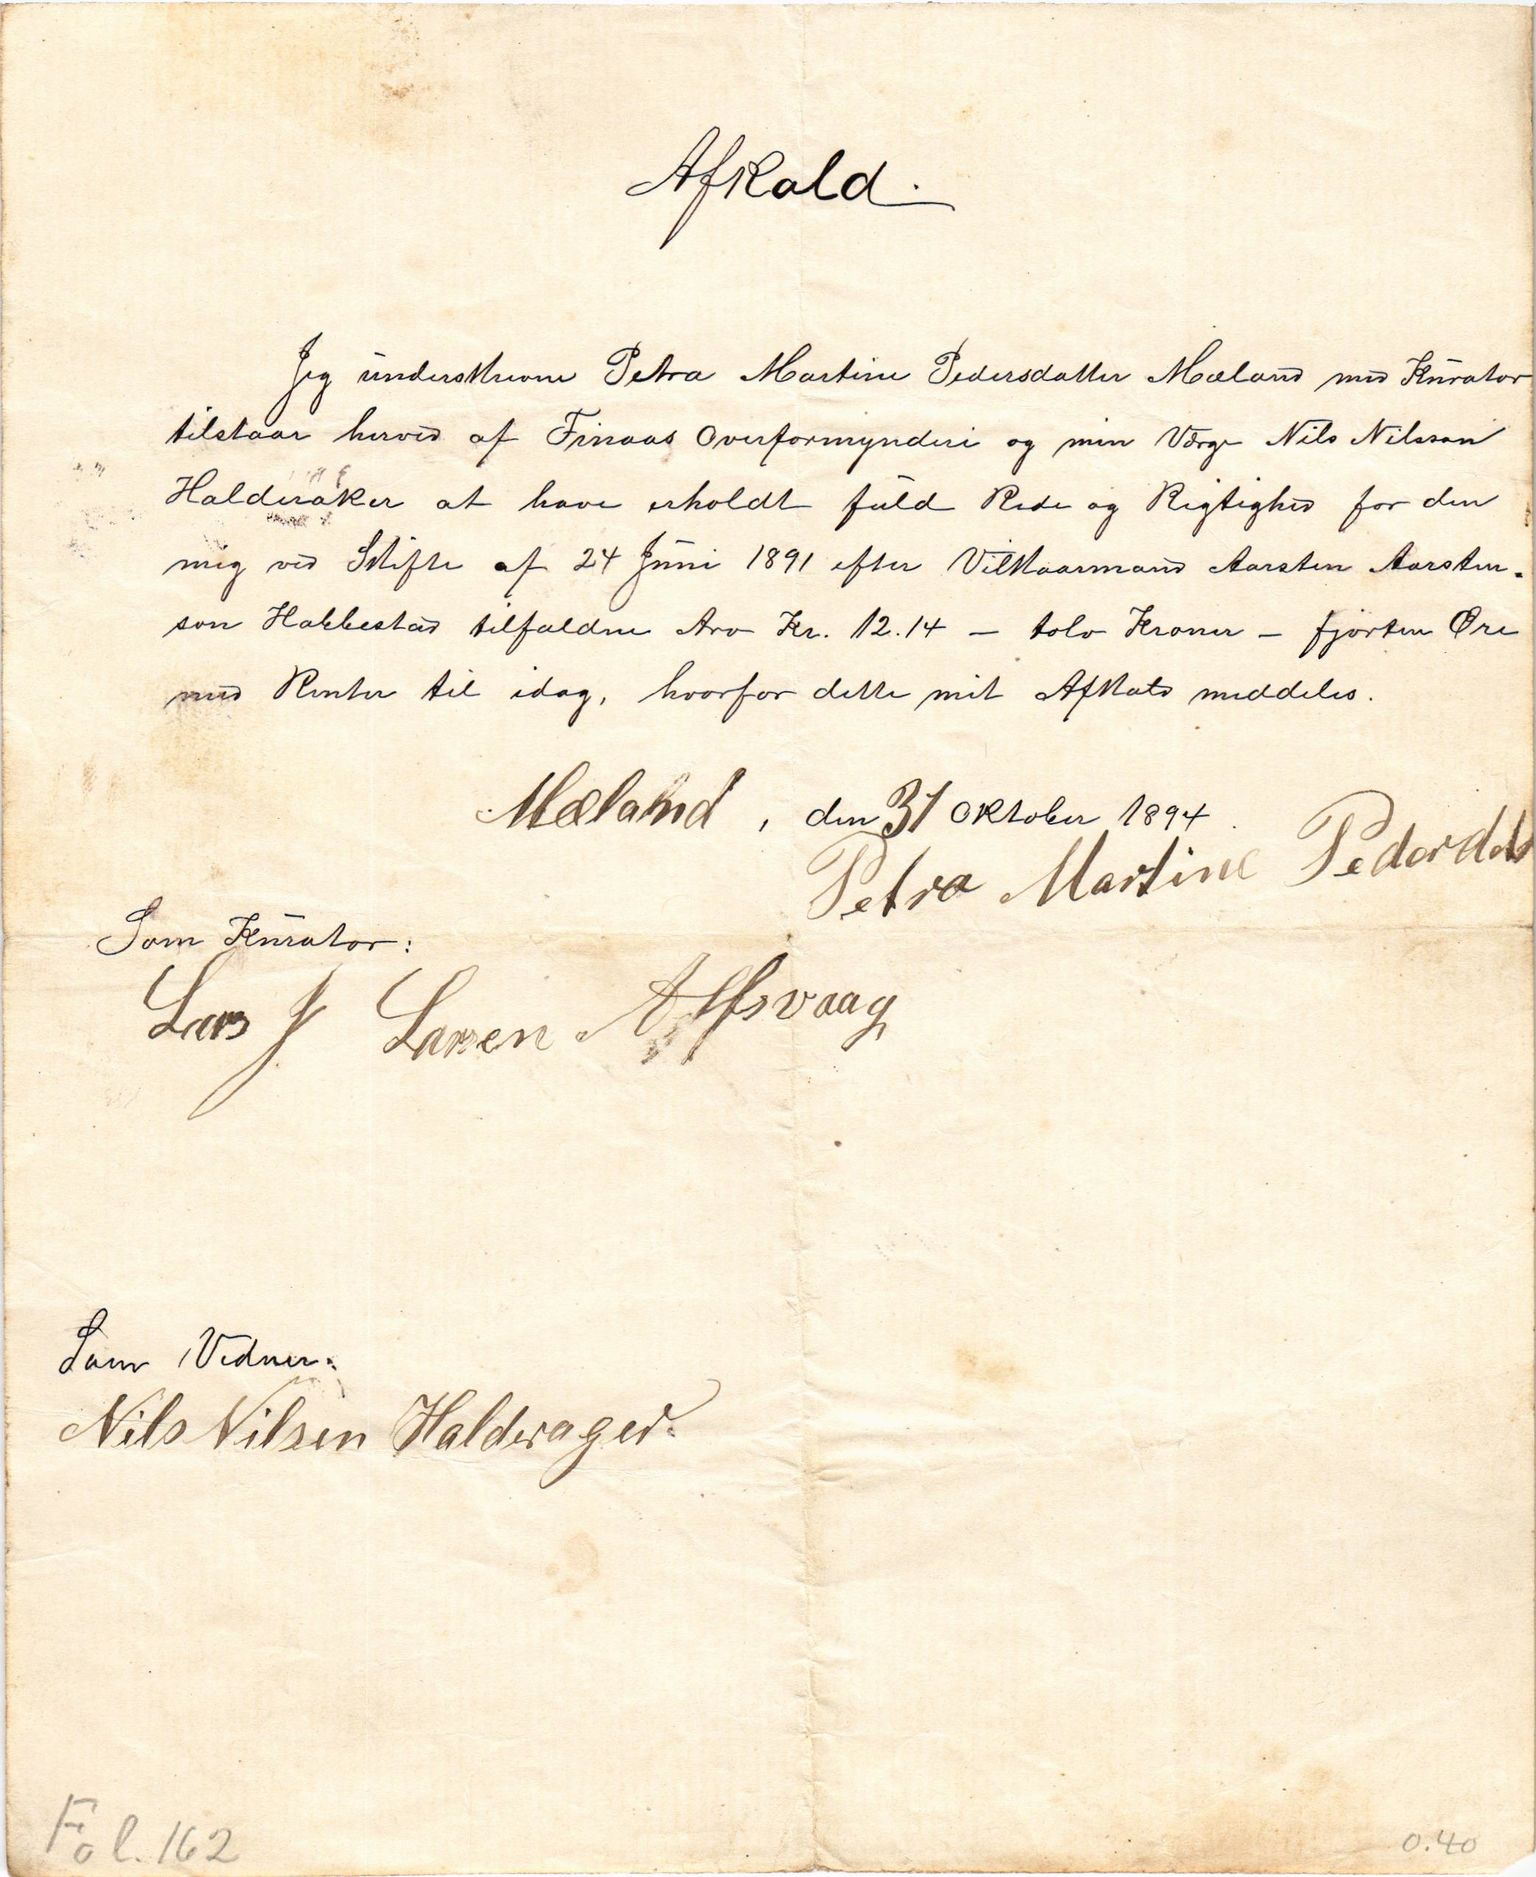 Afkald.
Jeg underskrevne Petra Martine Pedersdatter Mæland med Kurator
tilstaar herved af Finaas Overformynderi og min Værge Nils Nilsson
Halderaker at have erholdt fuld Rede og Rigtighed for den
mig ved Skifte af 24 Juni 1891 efter Vilkaarmand Aarsten Aarsten-
son Hakkestad tilfaldne Arv Kr. 12.14 – tolv Kroner – fjorten Øre
med Renter til idag, hvorfor dette mit Afkald meddeles.
Mæland, den 31 Oktober 1894.
Petra Martine Pedersdat
Som Kurator:
Lars J Larsen Alfsvaag
Som Vidner:
Nils Nilsen Halderager.
Fol. 162
0.40